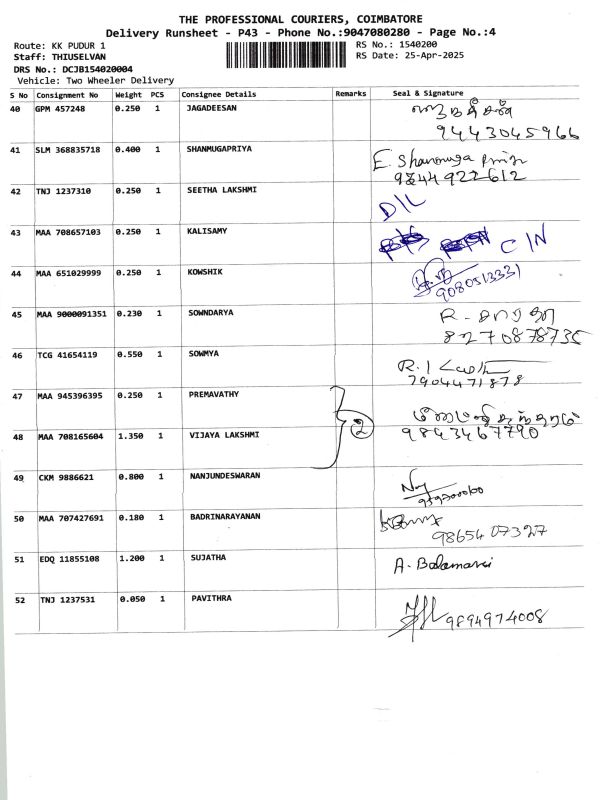 THE PROFESSIONAL COURIERS, COIMBATORE
Delivery Runsheet - P43 - Phone No.:9047080280 - Page No.:4
Route: KK PUDUR 1
RS No.: 1540200
Staff: THIUSELVAN
RS Date: 25-Apr-2025
DRS No.: DCJB154020004
Vehicle: Two Wheeler Delivery
S No Consignment No Weight PCS Consignee Details Remarks Seal & Signature
40 GPM 457248 0.250 1 JAGADEESAN
9443045966
41 SLM 368835718 0.400 1 SHANMUGAPRIYA E. Shanmuga priya
42 TNJ 1237310 0.250 1 SEETHA LAKSHMI D/L
43 MAA 708657103 0.250 1 KALISAMY C/N
44 MAA 651029999 0.250 1 KOWSHIK
9080513331
45 MAA 9000091351 0.230 1 SOWNDARYA R.
8270878735
46 TCG 41654119 0.550 1 SOWMYA
7904471878
47 MAA 945396395 0.250 1 PREMAVATHY
2
48 MAA 708165604 1.350 1 VIJAYA LAKSHMI 9843467790
49 CKM 9886621 0.800 1 NANJUNDESWARAN
50 MAA 707427691 0.180 1 BADRINARAYANAN
9865407327
51 EDQ 11855108 1.200 1 SUJATHA A. Balamani
52 TNJ 1237531 0.050 1 PAVITHRA
9894974008